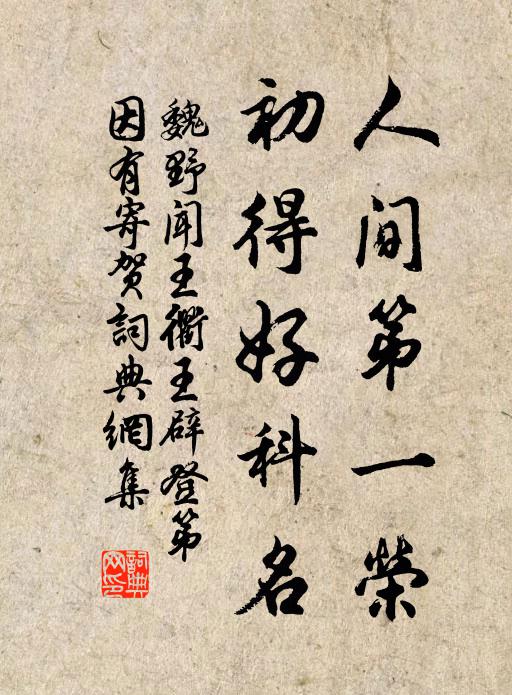 人间第一荣
初得好科名
魏野闻王衢王辟登第
因有寄贺词典網集
詞典
网印